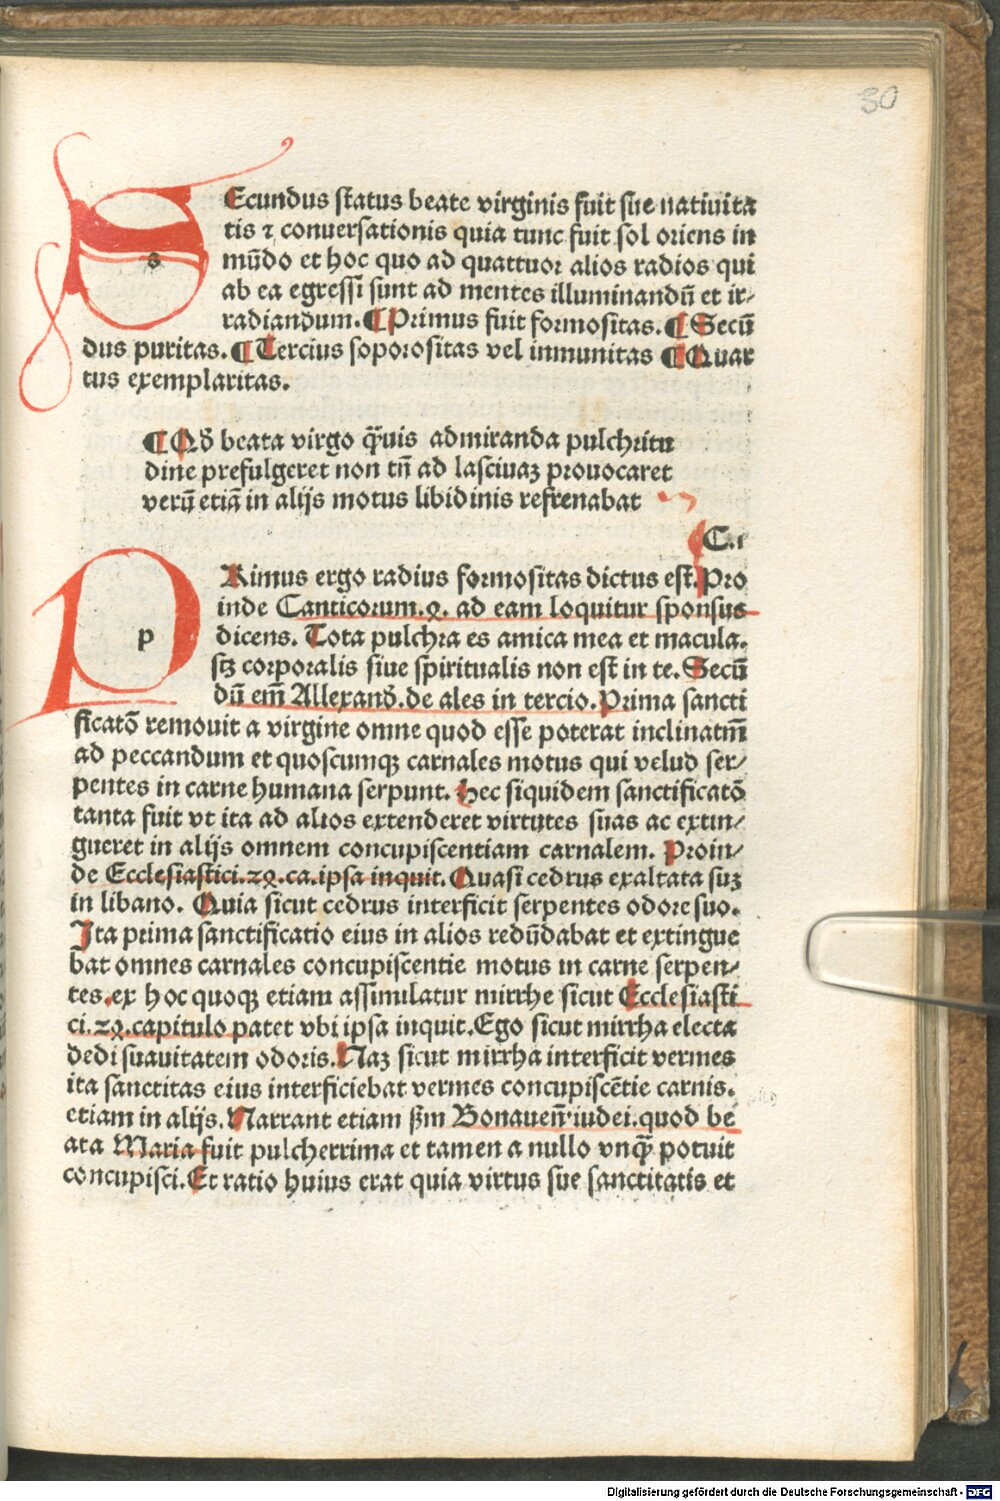 30
SEcundus status beate virginis fuit sue natiuita
tis ⁊ conuersationis quia tunc fuit sol oriens in
mūdo et hoc quo ad quattuor alios radios qui
ab ea egressi sunt ad mentes illuminandū et ir⸗
radiandum. ¶ Primus fuit formositas. ¶ Secū
dus puritas. ¶ Tercius soporositas vel inmunitas ¶ Quar
tus exemplaritas.
¶ Qð beata virgo q̄uis admiranda pulchritu
dine prefulgeret non tn̄ ad lasciuaꝫ prouocaret
verū etiā in alijs motus libidinis refrenabat
C.i
PRimus ergo radius formositas dictus est. Pro
inde Canticorum.4. ad eam loquitur sponsus
dicens. Tota pulchra es amica mea et macula.
sꝫ corporalis siue spiritualis non est in te. Secū
dū em̄ Allexanð. de ales in tercio. Prima sancti
ficatō remouit a virgine omne quod esse poterat inclinatm̄
ad peccandum et quoscumqꝫ carnales motus qui velud ser⸗
pentes in carne humana serpunt. Hec siquidem sanctificatō
tanta fuit vt ita ad alios extenderet virtutes suas ac extin⸗
gueret in alijs omnem concupiscentiam carnalem. Proin⸗
de Ecclesiastici.24.ca.ipsa inquit. Quasi cedrus exaltata suꝫ
in libano. Quia sicut cedrus interficit serpentes odore suo.
Ita prima sanctificatio eius in alios redūdabat et extingue
bat omnes carnales concupiscentie motus in carne serpen⸗
tes. ex hoc quoqꝫ etiam assimulatur mirrhe sicut Ecclesiasti
ci.24.capitulo patet vbi ipsa inquit. Ego sicut mirrha electa
dedi suauitatem odoris. Naꝫ sicut mirrha interficit vermes
ita sanctitas eius interficiebat vermes concupiscētie carnis.
etiam in alijs. Narrant etiam ẜm Bonauen̄ iudei. quod be
ata Maria fuit pulcherrima et tamen a nullo vnq̄ potuit
concupisci. Et ratio huius erat quia virtus sue sanctitatis et
Digitalisierung gefördert durch die Deutsche Forschungsgemeinschaft - DFG